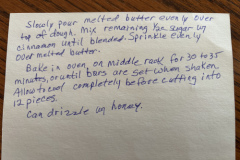 Slowly pour melted butter evenly over
top of dough. Mix remaining ½c sugar w/
cinnamon until blended. Sprinkle evenly
over melted butter.
Bake in oven, on middle rack for 30 to 35
minutes, or until bars are set when shaken.
Allow to cool completely before cutting into
12 pieces.
Can drizzle w honey.